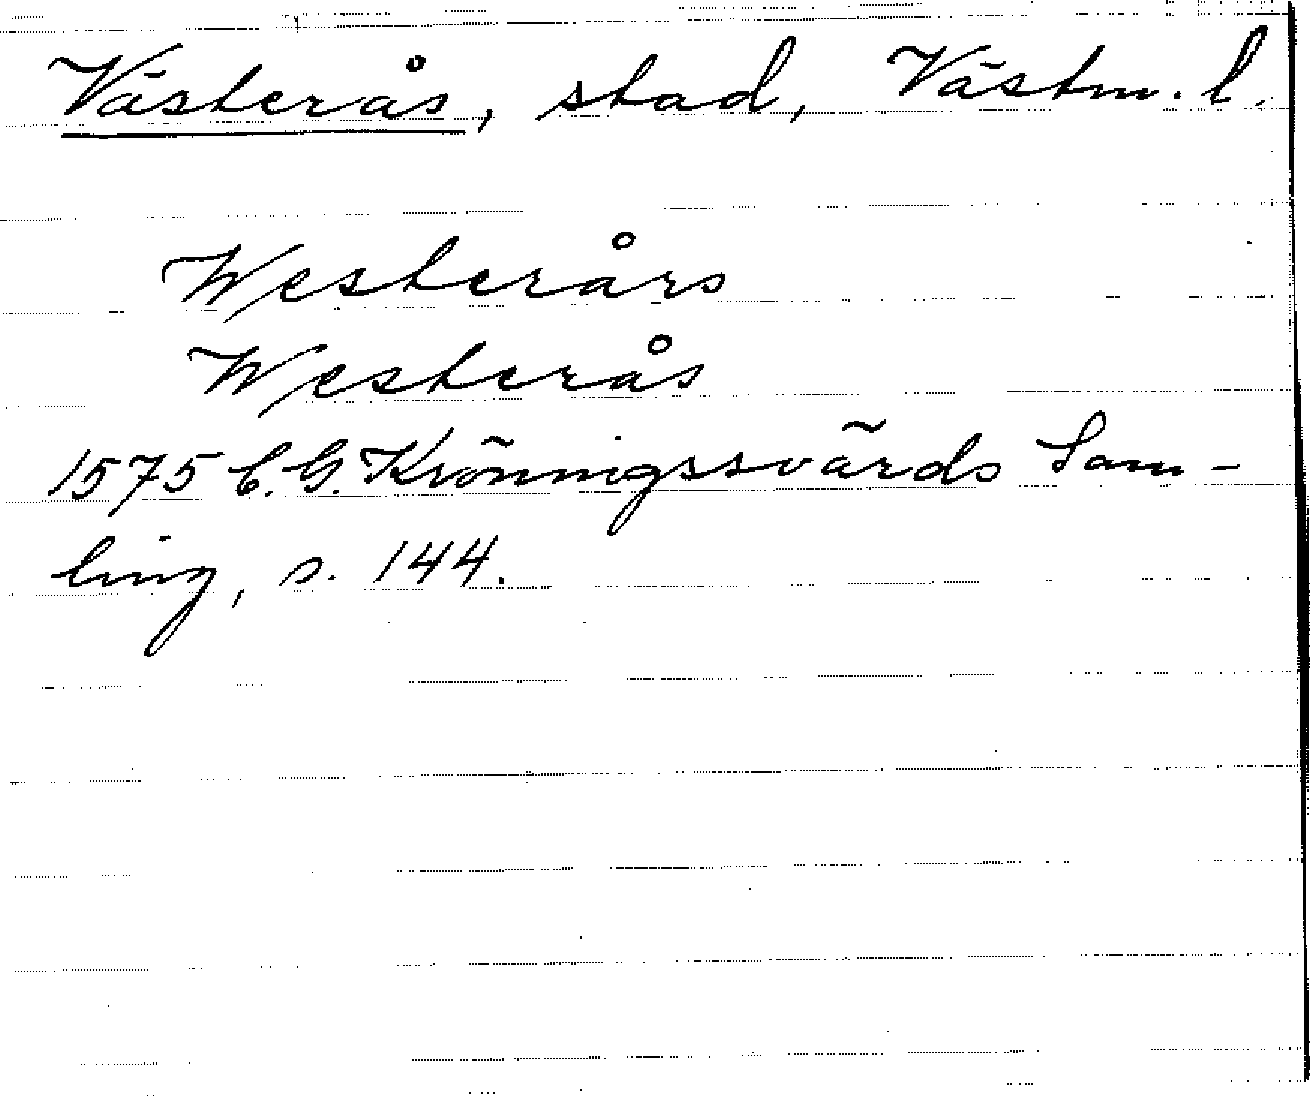 Västerås, stad, Västm. l.
Westerårs
Westerås
1575 C. G. Krönningssvärds Sam-
ling, s. 144.